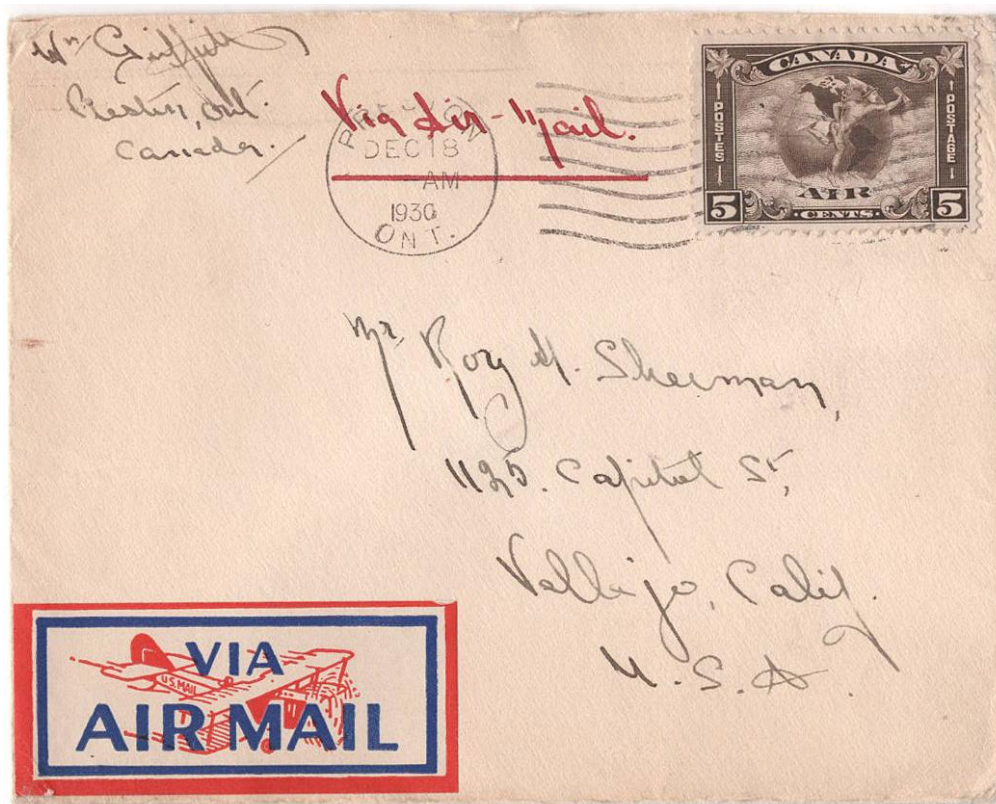 Wm Griffith
Preston, Ont.
Canada.
Via Air-Mail.
PRESTON
DEC 18
-AM
1930
ONT.
CANADA
POSTES
POSTAGE
AIR
5 CENTS 5
Mr. Roy H. Sherman,
1125. Capitol St,
Vallejo, Calif.
U.S.A.
VIA
U.S. MAIL
AIR MAIL